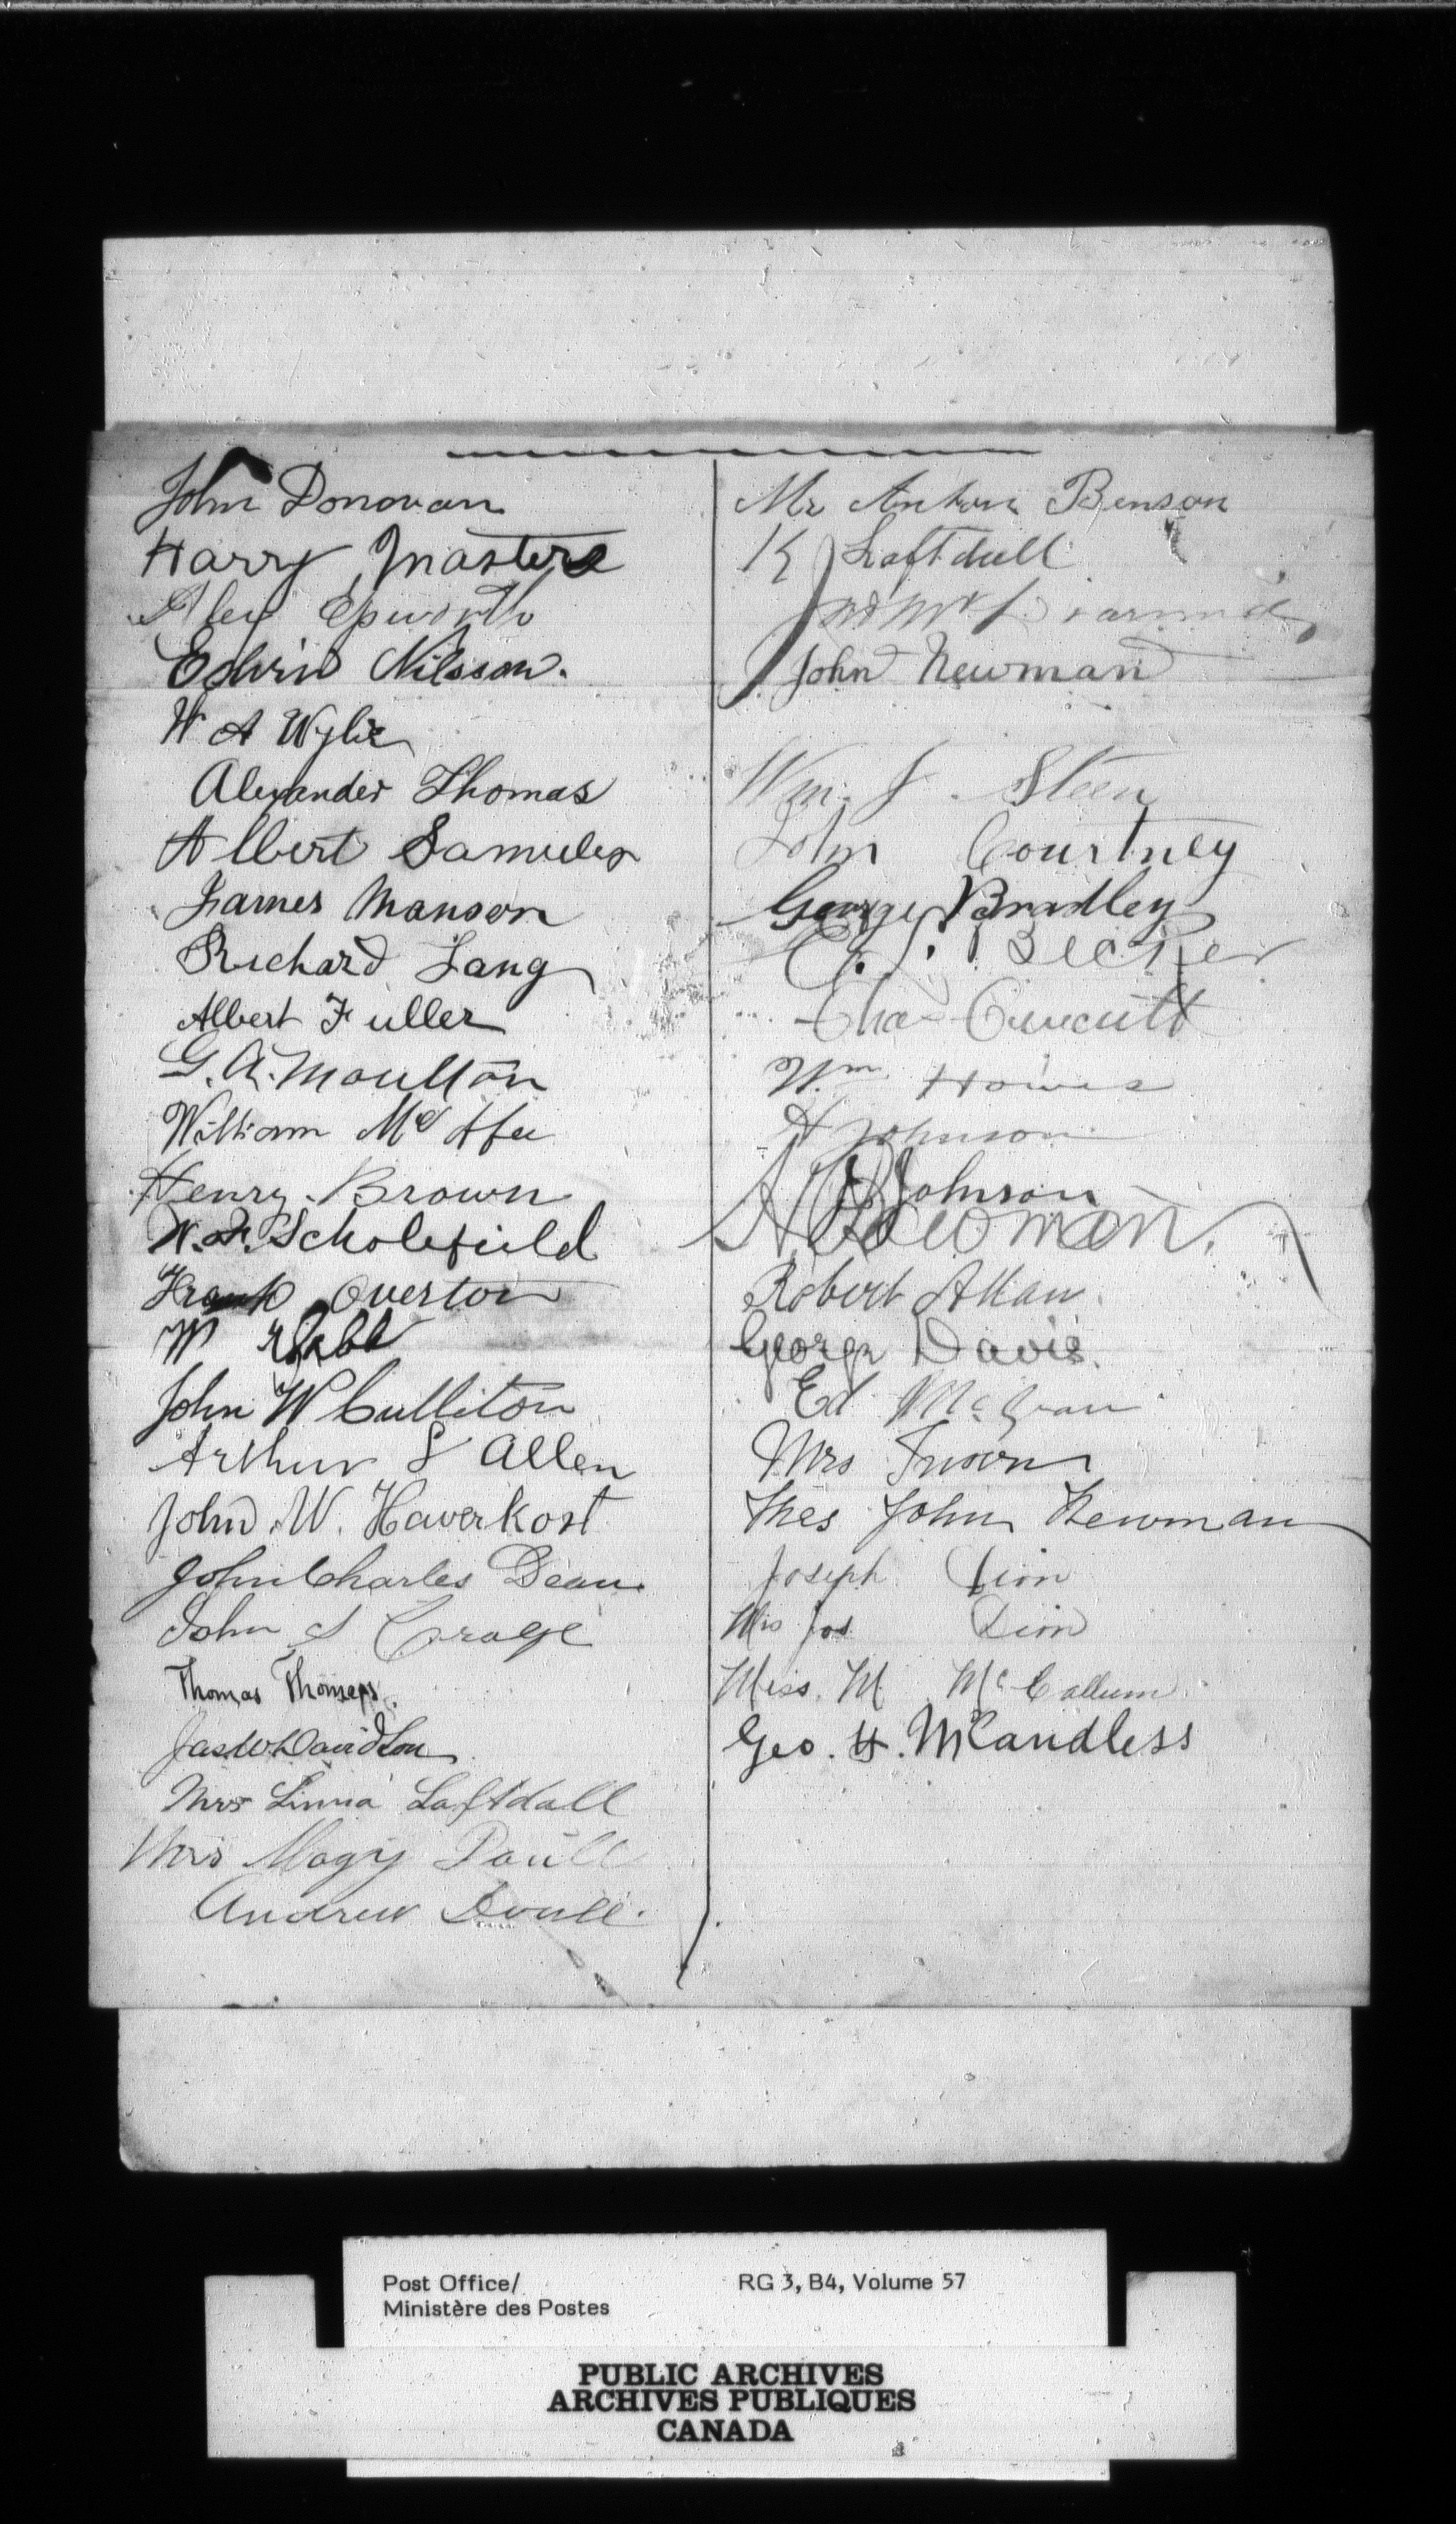 John Donovan
Harry Masters
Alex Epworth
Edwin Nilsson.
W A Wylie
Alexander Thomas
Albert Samuels
James Manson
Richard Lang
Albert Fuller
G. A. Moulton
William Mc Afee
Henry Brown
W. F. Scholefield
Frank Overton
W
John W Culliton
Arthur S Allen
John W. Haverkost
John Charles Dean
John S
Thomas
Jas W Davidson
Mrs Linna Laftdall
Mrs Magy Doull
Andrew Doull.
Mr Anton Benson
K Laftdall
John Newman
Wm. J. Steen
John Courtney
George Bradley
C. J. Becker
Chas
Wm Howes
A Johnson
Johnson
Newman.
Robert Allan
George Davis.
Ed
Mrs
Mrs John Newman
Joseph Dion
Mrs Jos Dion
Miss. M McCallum.
Geo. H. McCandless
Post Office/
Ministère des Postes
RG 3, B4, Volume 57
PUBLIC ARCHIVES
ARCHIVES PUBLIQUES
CANADA